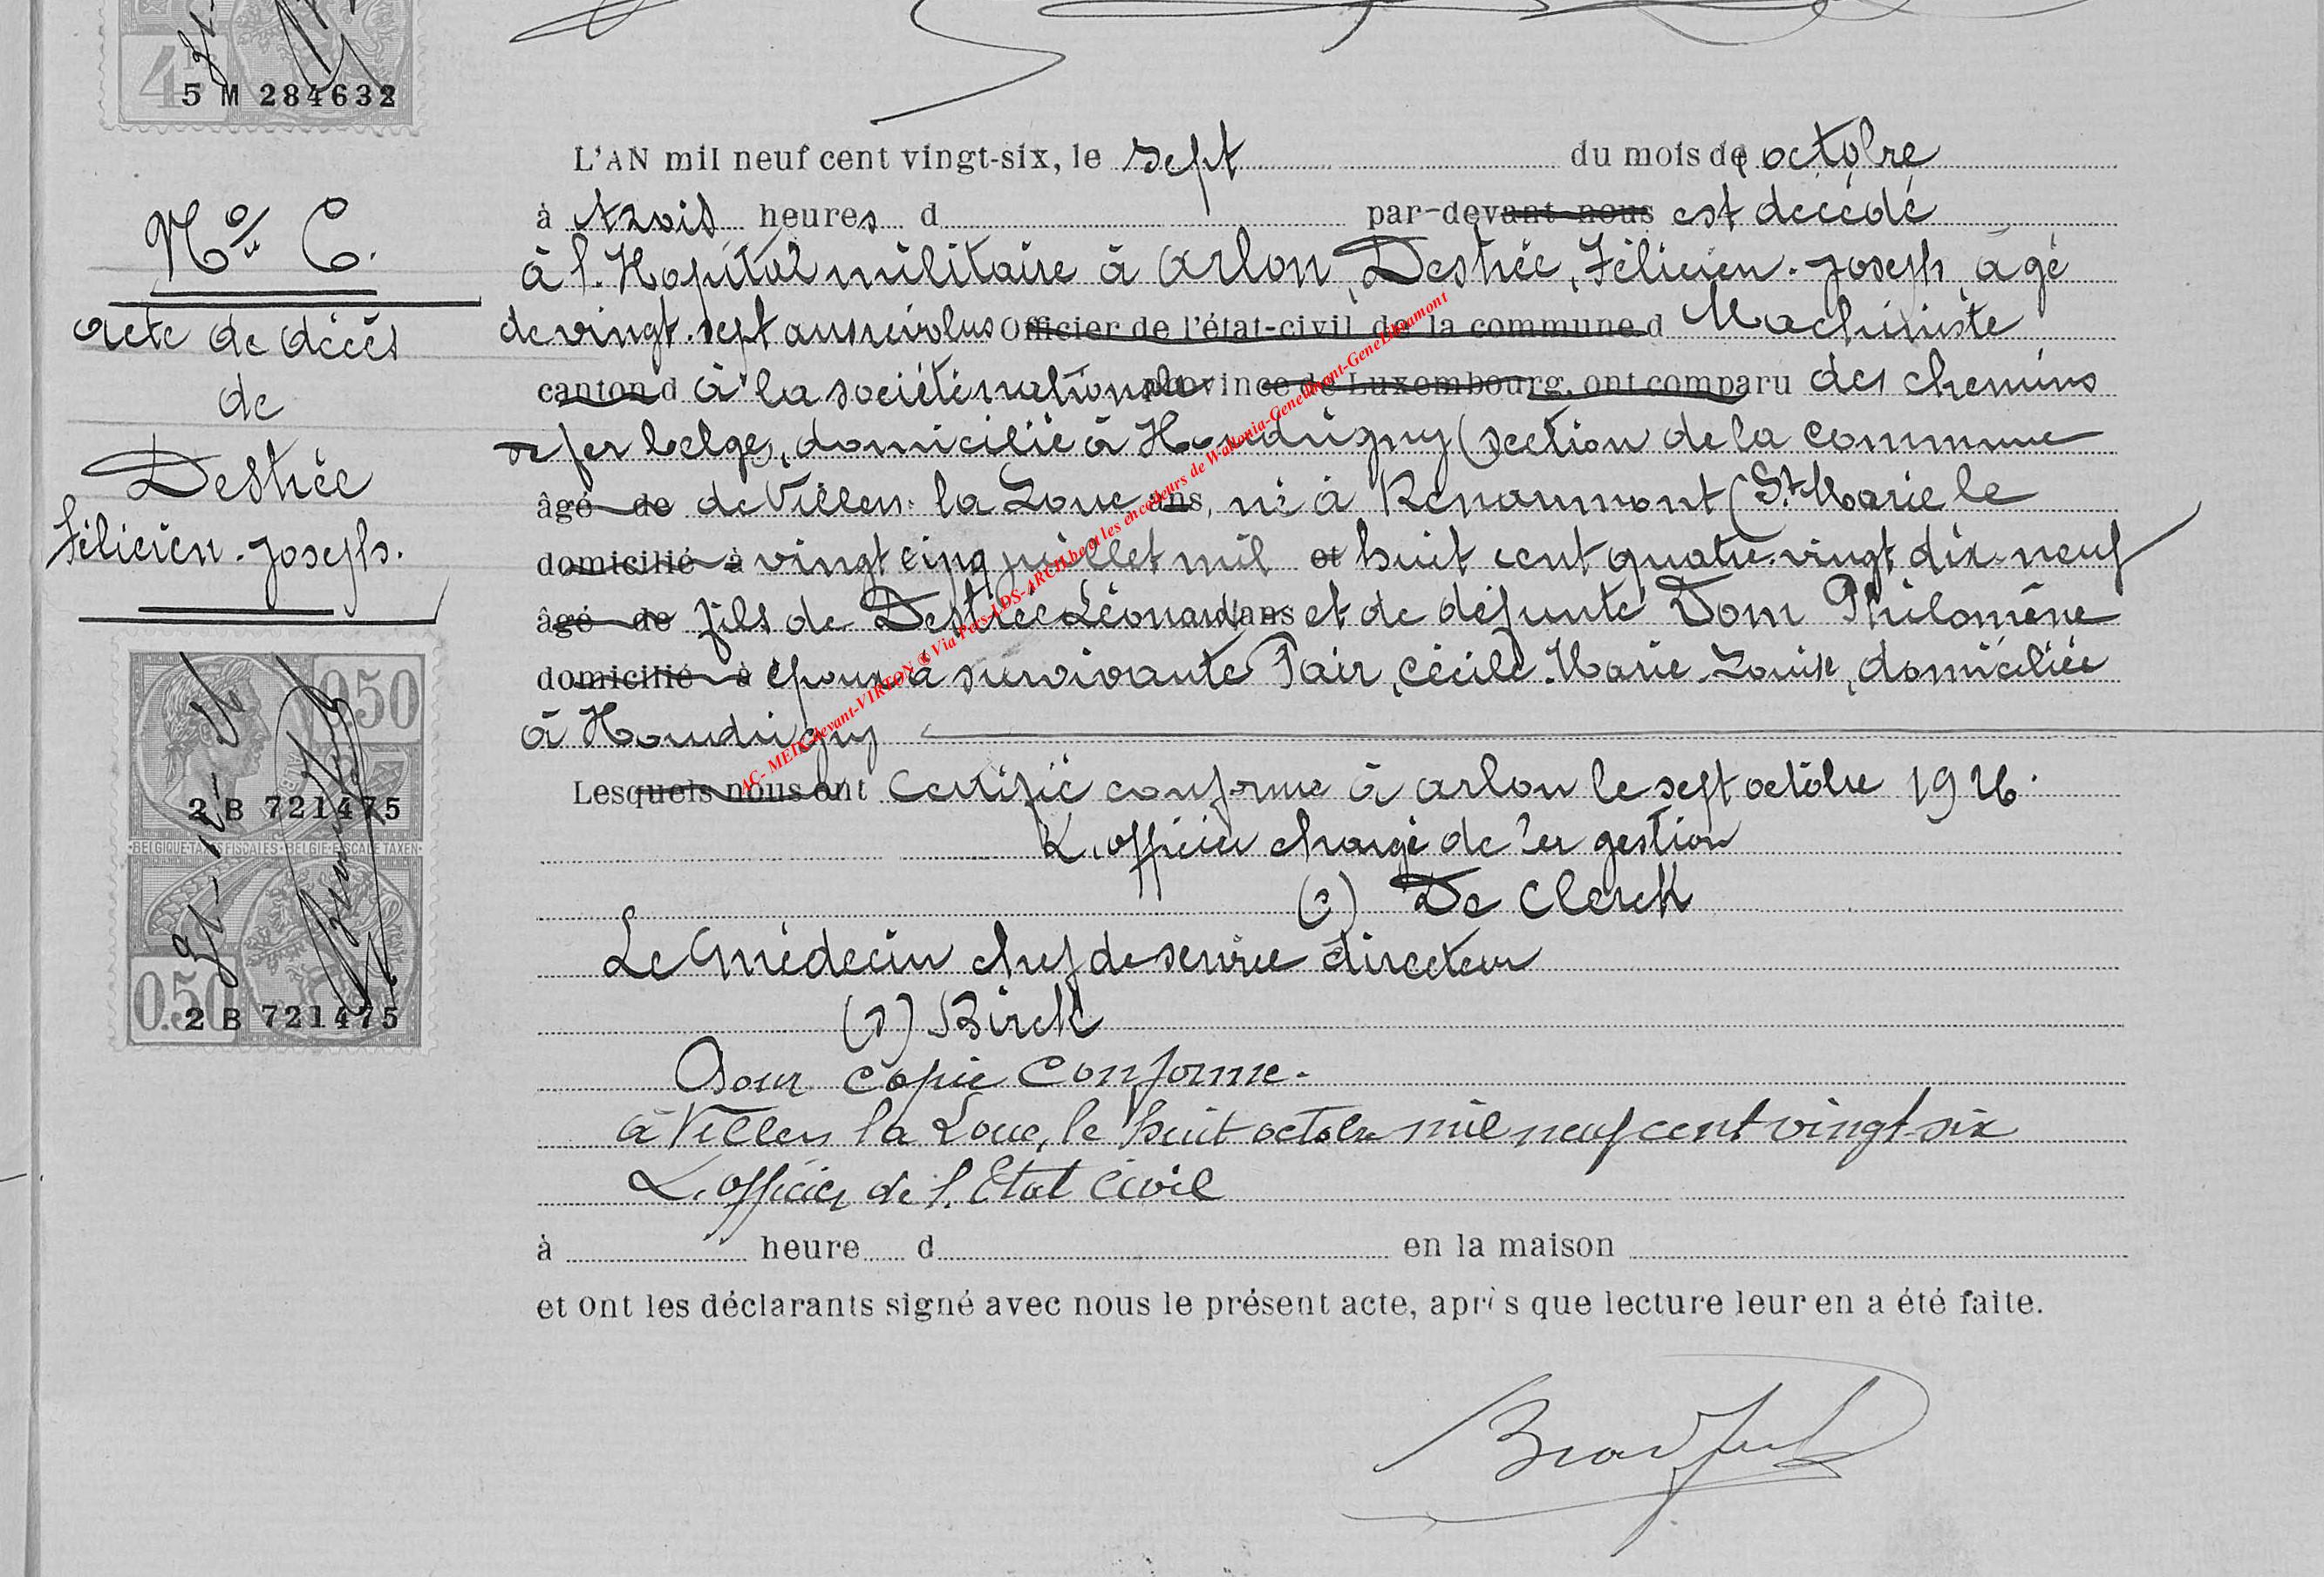 4
5 M 284632
L'AN mil neuf cent vingt-six, le sept du mois de octobre
à trois heures d par-devant nous est décédé
à l'Hopital militaire à Arlon, Destrée, Félicien-Joseph, âgé
de vingt-sept ans révolus Officier de l'état-civil de la commune d Machiniste
canton d à la société nationale province de Luxembourg, ont comparu des chemins
de fer belges, domicilié à Houdrigny (section de la commune
âgé de de Villers-la-Loue ans, né à Renaumont (St Marie le
domicilié à vingt cinq juillet mil et huit cent quatre-vingt dix-neuf
âgé de fils de Destrée Léonard ans et de défunte Dom Philomène
domicilié à époux à survivante Pair, Cécile-Marie-Louise, domiciliée
à Houdrigny
Lesquels nous ont Certifié conforme à Arlon le sept octobre 1926.
L'officier chargé de la gestion
(s) De Clerck
Le Médecin chef de service directeur
(s) Birck
Pour copie conforme.
à Villers la Loue, le huit octobre mil neuf cent vingt-six
L'officier de l'Etat Civil
à heure d en la maison
et ont les déclarants signé avec nous le présent acte, après que lecture leur en a été faite.
No 6.
acte de décès
de
Destrée
Félicien-Joseph.
0.50
2 B 721475
BELGIQUE-TAXES FISCALES · BELGIE-FISCALE TAXEN
0.50
2 B 721475